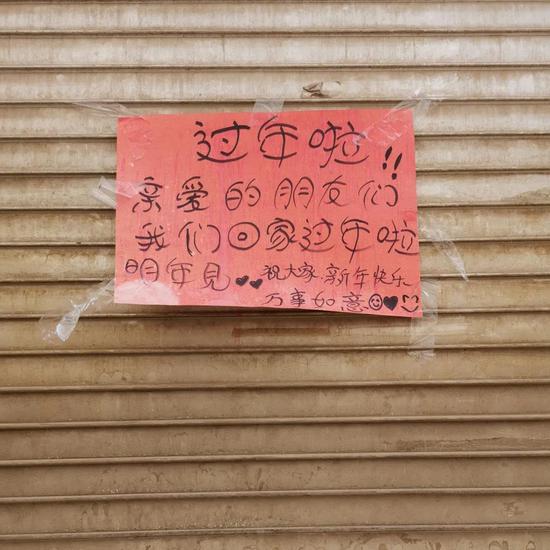 过年啦!!
亲爱的朋友们
我们回家过年啦
明年见
祝大家新年快乐
万事如意